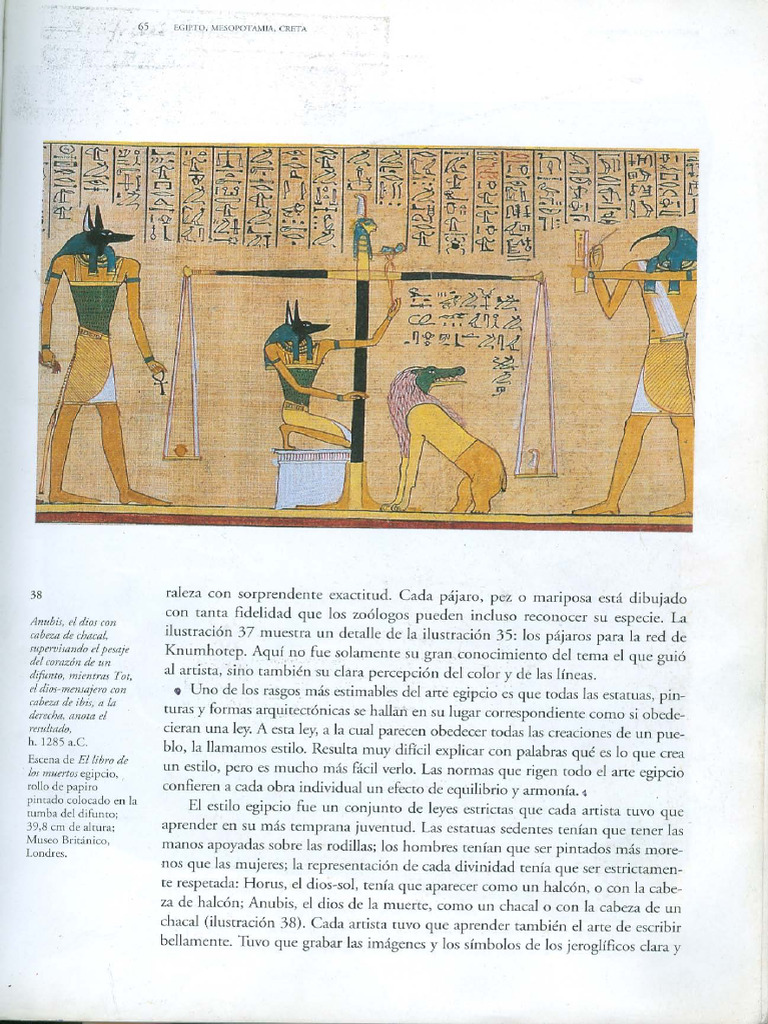 65 EGIPTO, MESOPOTAMIA, CRETA
38
Anubis, el dios con
cabeza de chacal,
supervisando el pesaje
del corazón de un
difunto, mientras Tot,
el dios-mensajero con
cabeza de ibis, a la
derecha, anota el
resultado,
h. 1285 a.C.
Escena de El libro de
los muertos egipcio,
rollo de papiro
pintado colocado en la
tumba del difunto;
39,8 cm de altura;
Museo Británico,
Londres.
raleza con sorprendente exactitud. Cada pájaro, pez o mariposa está dibujado
con tanta fidelidad que los zoólogos pueden incluso reconocer su especie. La
ilustración 37 muestra un detalle de la ilustración 35: los pájaros para la red de
Knumhotep. Aquí no fue solamente su gran conocimiento del tema el que guió
al artista, sino también su clara percepción del color y de las líneas.
Uno de los rasgos más estimables del arte egipcio es que todas las estatuas, pin-
turas y formas arquitectónicas se hallan en su lugar correspondiente como si obede-
cieran una ley. A esta ley, a la cual parecen obedecer todas las creaciones de un pue-
blo, la llamamos estilo. Resulta muy difícil explicar con palabras qué es lo que crea
un estilo, pero es mucho más fácil verlo. Las normas que rigen todo el arte egipcio
confieren a cada obra individual un efecto de equilibrio y armonía.
El estilo egipcio fue un conjunto de leyes estrictas que cada artista tuvo que
aprender en su más temprana juventud. Las estatuas sedentes tenían que tener las
manos apoyadas sobre las rodillas; los hombres tenían que ser pintados más more-
nos que las mujeres; la representación de cada divinidad tenía que ser estrictamen-
te respetada: Horus, el dios-sol, tenía que aparecer como un halcón, o con la cabe-
za de halcón; Anubis, el dios de la muerte, como un chacal o con la cabeza de un
chacal (ilustración 38). Cada artista tuvo que aprender también el arte de escribir
bellamente. Tuvo que grabar las imágenes y los símbolos de los jeroglíficos clara y